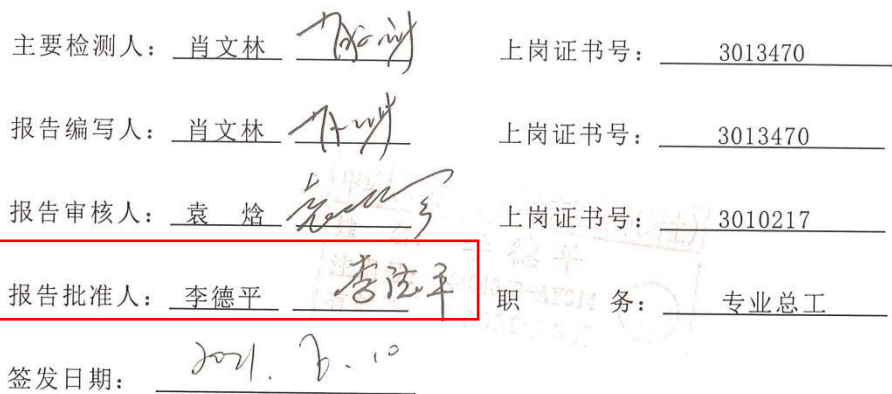 主要检测人： 肖文林 上岗证书号： 3013470
报告编写人： 肖文林 上岗证书号： 3013470
报告审核人： 袁 焓 上岗证书号： 3010217
报告批准人： 李德平 李德平 职 务： 专业总工
签发日期：